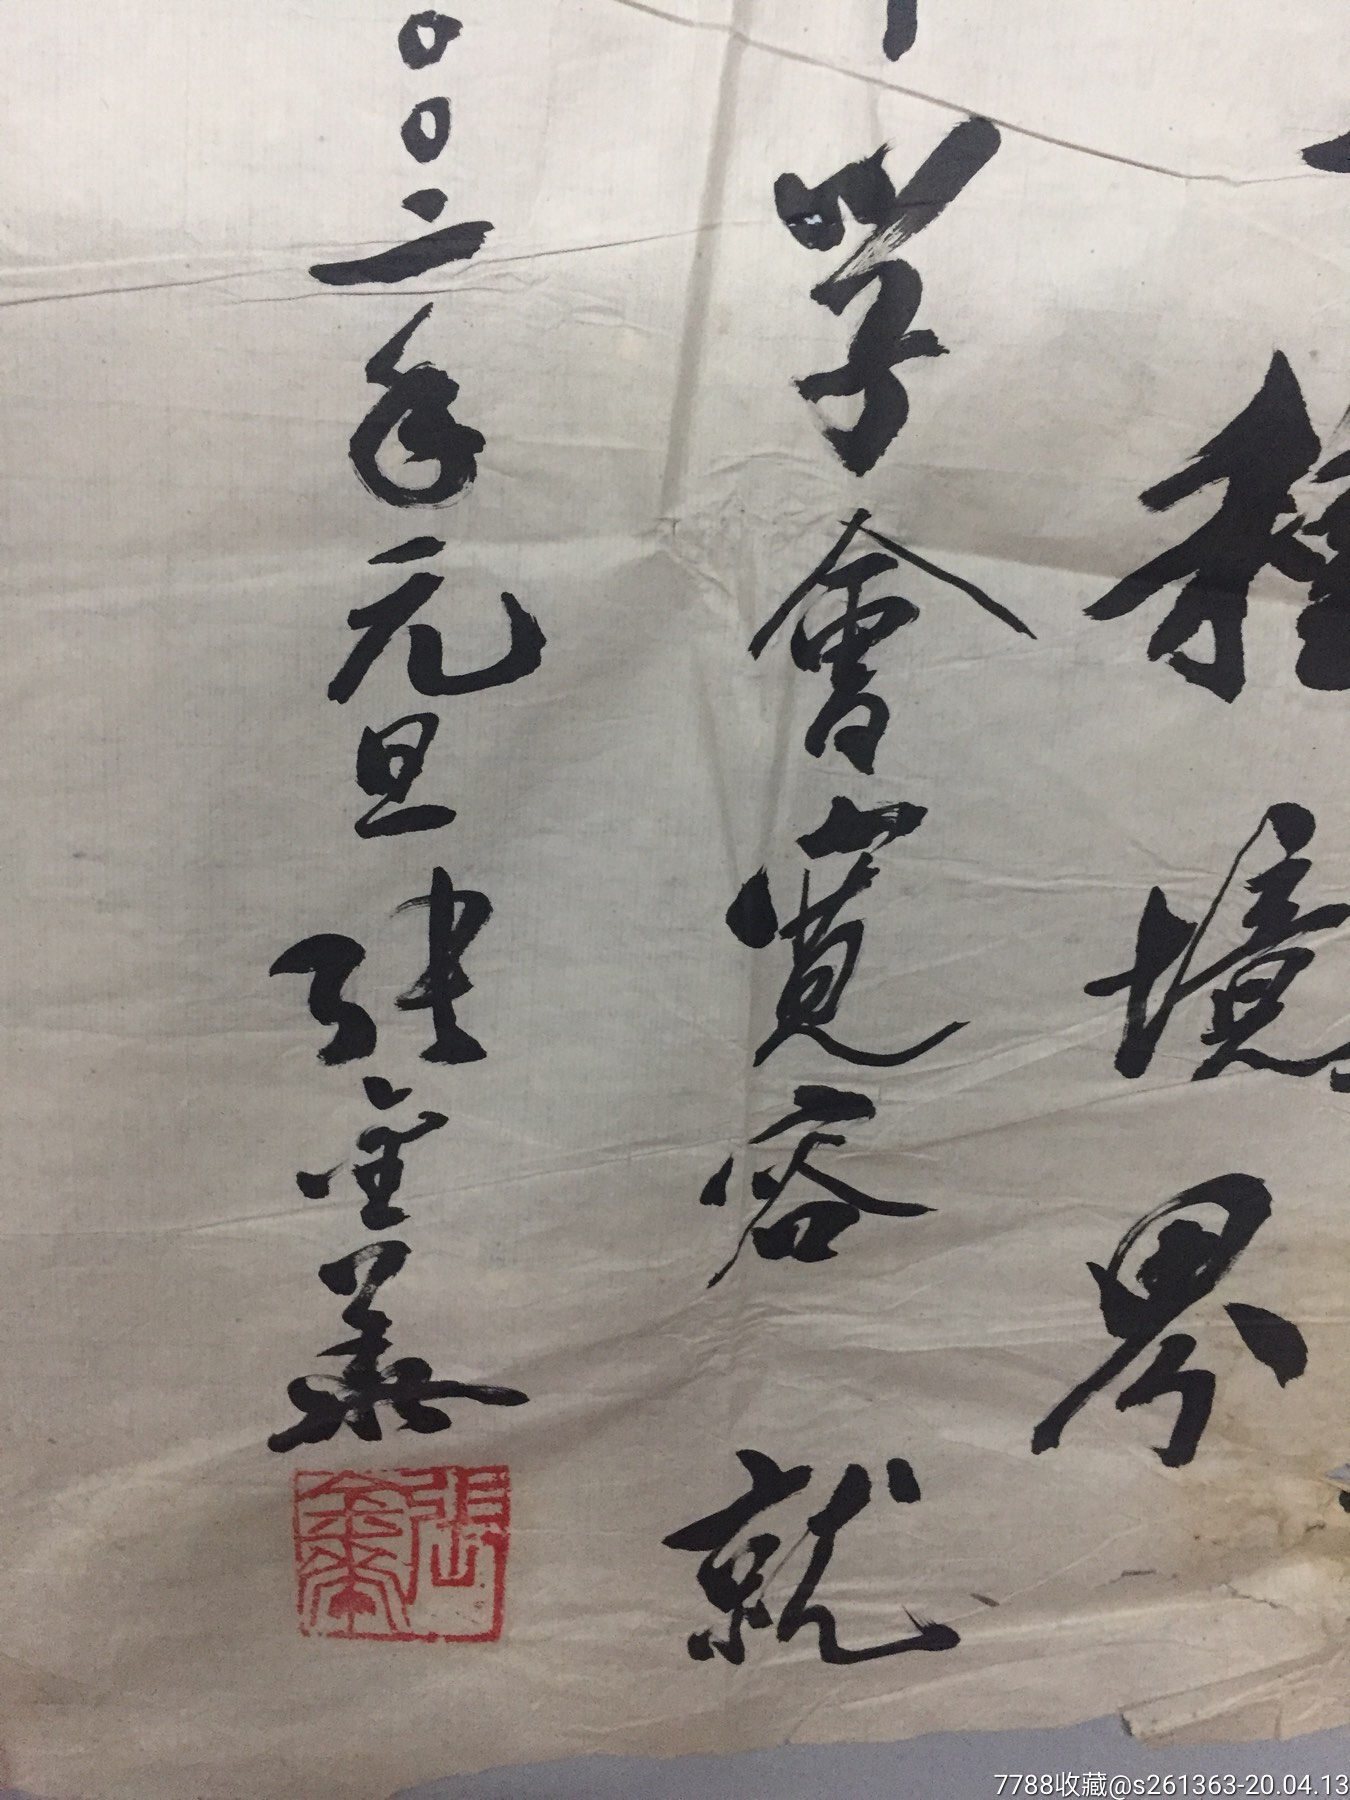 種境界
学會寬容就
〇〇二年元旦张金
張金
7788收藏@s261363-20.04.13